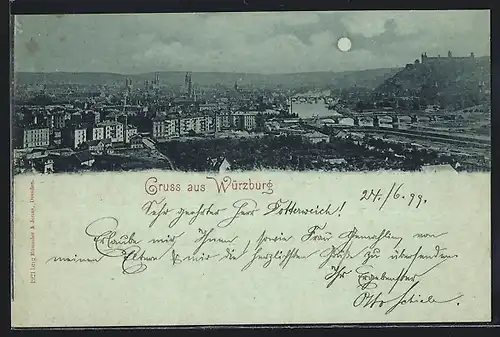 Gruss aus Würzburg
24./6.99.
Sehr geehrter Herr Dotterweich!
Erlaube mir, Ihnen, sowie Frau Gemahlin, von
meinen Eltern & mir die herzlichsten Grüße zu übersenden.
Ihr Ergebenster
Otto Schiele.